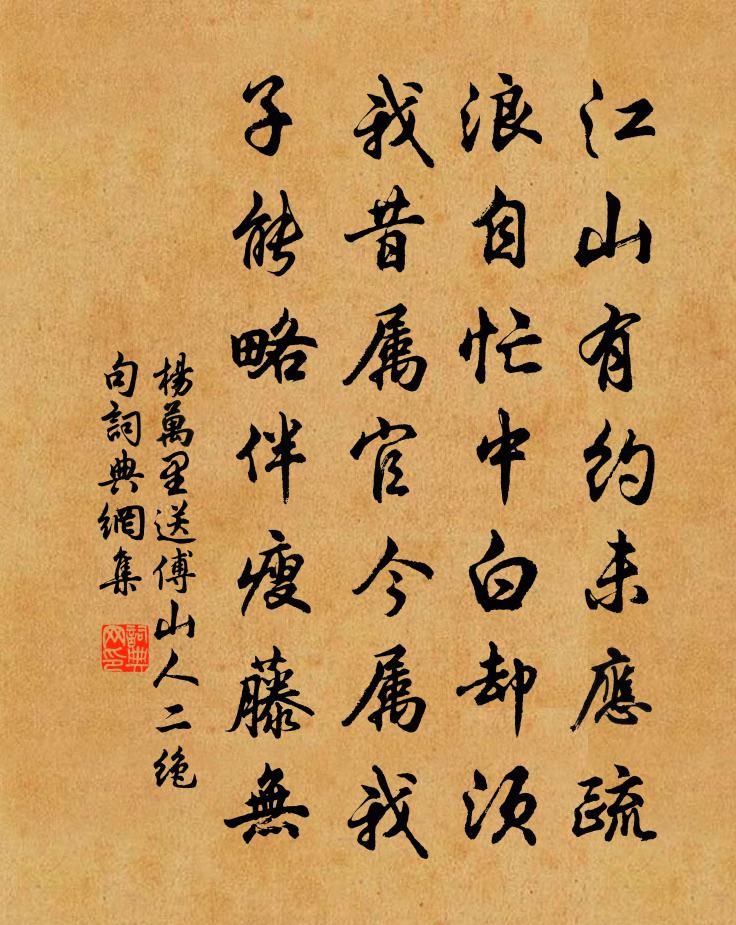 江山有約未應疏
浪自忙中白却須
我昔属官今属我
子能略伴瘦藤無
楊萬里送傅山人二絶
句詞典網集
詞典
网印